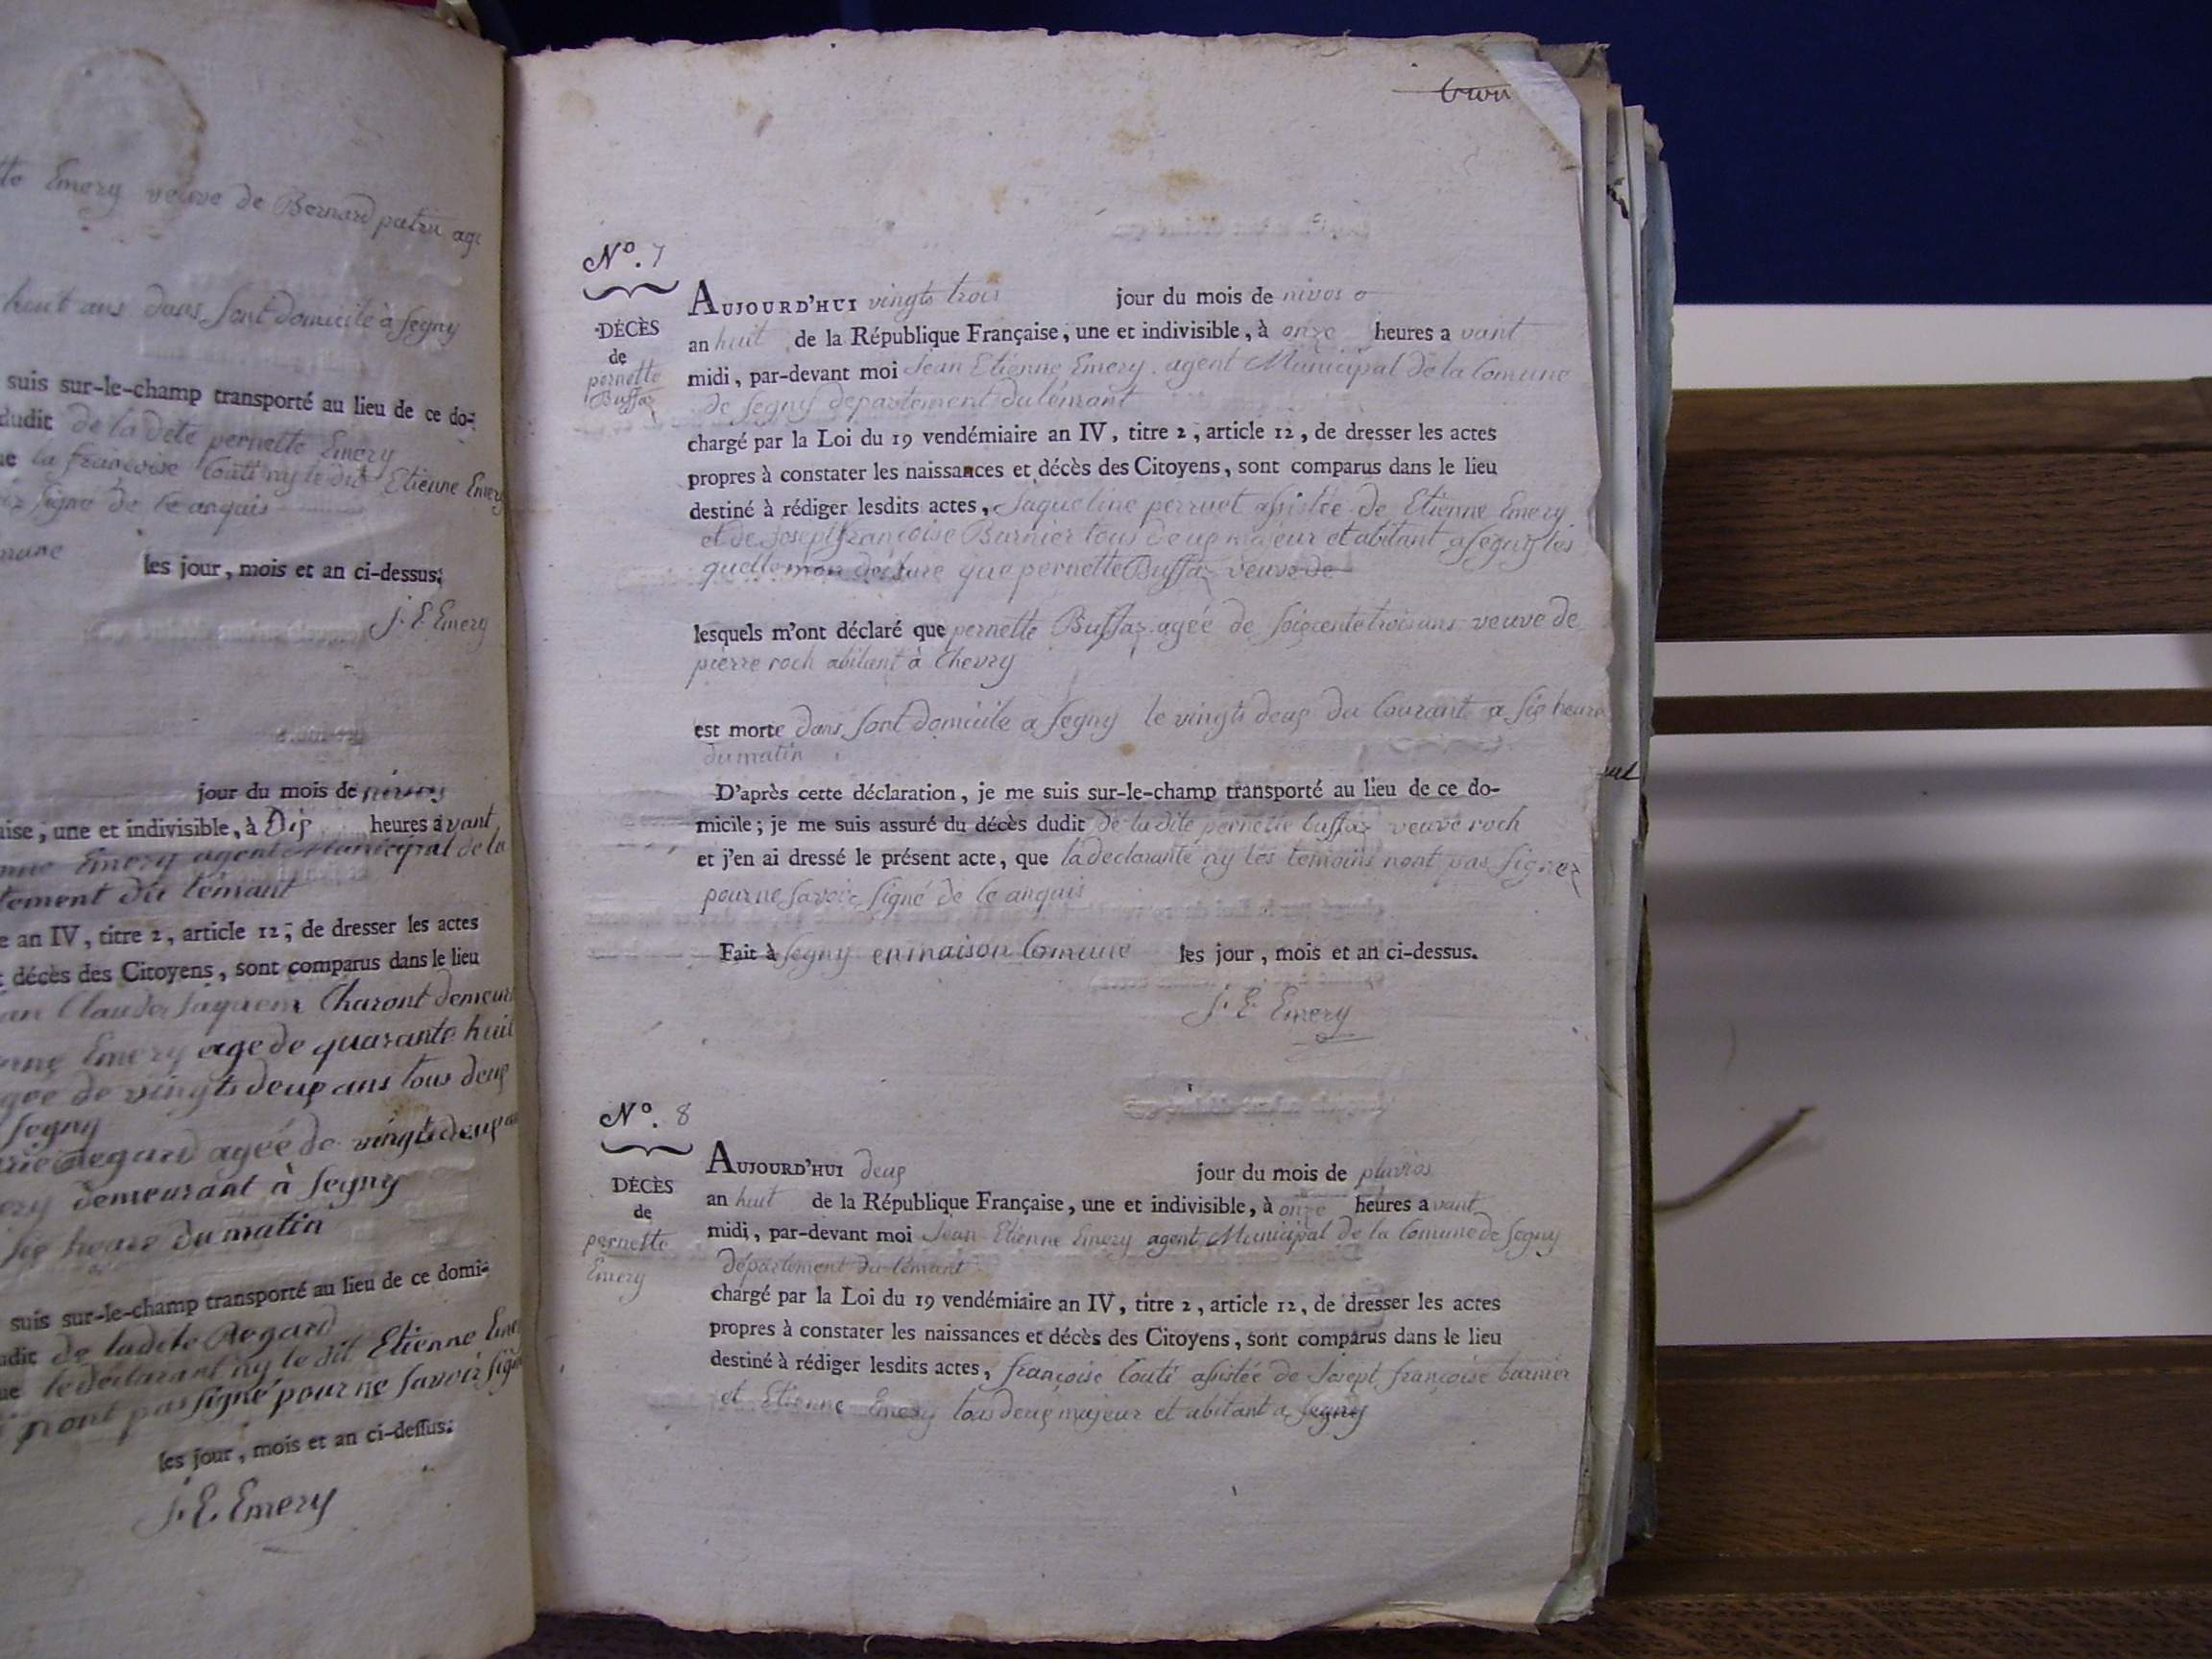 Emery veuve de Bernard patru age
huit ans dans sont domicile à Segny
suis sur-le-champ transporté au lieu de ce do-
dudit de la dete pernette Emery
la francoise Couti ny le dit Etienne Emery
signé de ce anquis
les jour, mois et an ci-dessus.
J. E Emery
jour du mois de nivos
une et indivisible, à Dix heures avant
Emery agent Municipal de la
du lémant
an IV, titre 2, article 12, de dresser les actes
décès des Citoyens, sont comparus dans le lieu
Claude Jaquem Charont demeur
Emery age de quarante huit
de vingts deux ans tous deux
Segny
Regard agée de vingts deux
demeurant à Segny
six heure du matin
suis sur-le-champ transporté au lieu de ce domi-
de ladete Regard
le déclarant ny le dit Etienne Eme
nont pas signé pour ne savoir signé
les jour, mois et an ci-dessus.
J. E. Emery
Nº. 7
DÉCÈS
de
pernette
Buffaz
AUJOURD'HUI vingts trois jour du mois de nivos
an huit de la République Française, une et indivisible, à onze heures a vant
midi, par-devant moi Jean Etienne Emery agent Municipal de la Comune
de Segny departement du lémant
chargé par la Loi du 19 vendémiaire an IV, titre 2, article 12, de dresser les actes
propres à constater les naissances et décès des Citoyens, sont comparus dans le lieu
destiné à rédiger lesdits actes, Jaqueline perruet assistée de Etienne Emery
et de Josept françoise Burnier tous deux majeur et abitant a Segny les
quelle mon déclare que pernette Buffaz veuve de
lesquels m'ont déclaré que pernette Buffaz agée de soixcente trois ans veuve de
pierre roch abitant à Chevry
est morte dans sont domicile a Segny le vingts deux du Courant a six heure
du matin
D'après cette déclaration, je me suis sur-le-champ transporté au lieu de ce do-
micile; je me suis assuré du décès dudit de ladite pernette buffaz veuve roch
et j'en ai dressé le présent acte, que la declarante ny les temoins nont pas signer
pour ne savoir signé de ce anquis
Fait à Segny en maison Comune les jour, mois et an ci-dessus.
J. E Emery
Nº. 8
DÉCÈS
de
pernette
Emery
AUJOURD'HUI deux jour du mois de pluvios
an huit de la République Française, une et indivisible, à onze heures a vant
midi, par-devant moi Jean Etienne Emery agent Municipal de la Comune de Segny
département du lémant
chargé par la Loi du 19 vendémiaire an IV, titre 2, article 12, de dresser les actes
propres à constater les naissances et décès des Citoyens, sont comparus dans le lieu
destiné à rédiger lesdits actes, françoise Couti assistée de Josept françoise burnier
et Etienne Emery tous deux majeur et abitant a Segny